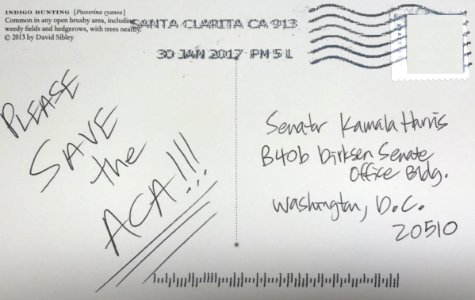 INDIGO BUNTING [Passerina cyanea]
Common in any open brushy area, including
weedy fields and hedgerows, with trees nearby.
© 2013 by David Sibley
SANTA CLARITA CA 913
30 JAN 2017 PM 5 L
PLEASE
SAVE
the
ACA!!!
Senator Kamala Harris
B40b Dirksen Senate
Office Bldg.
Washington, D.C.
20510